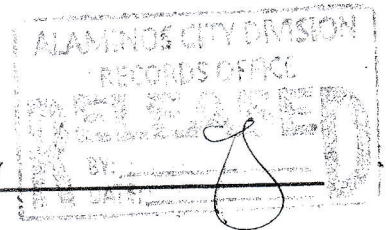 ALAMINOS CITY DIVISION
RECORDS OFFICE
RELEASED
BY:
DATE: